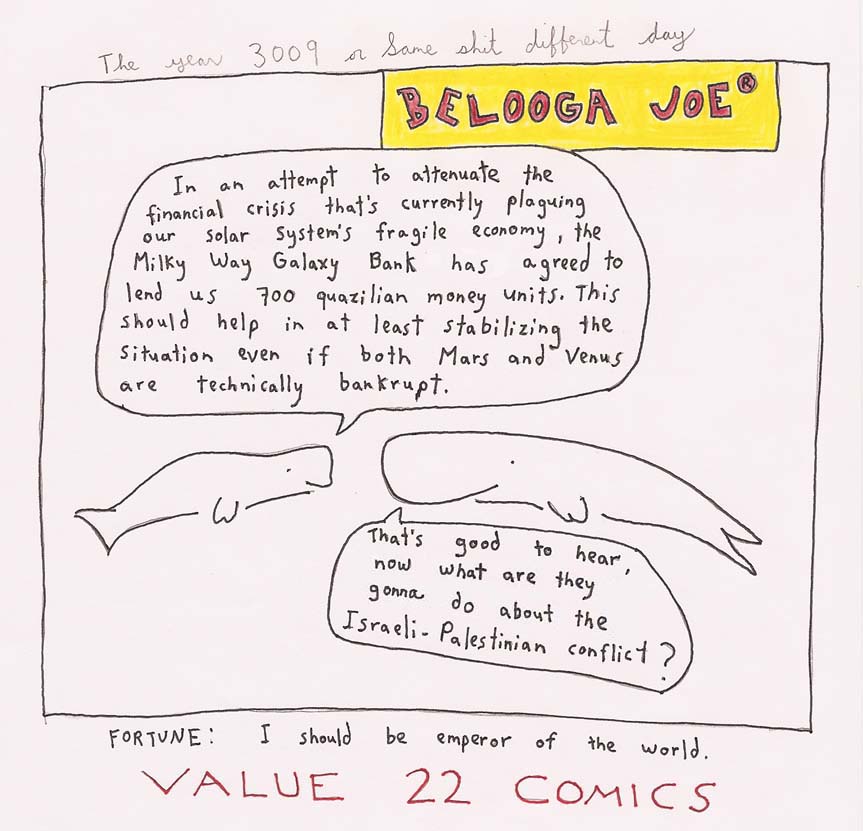 The year 3009 or Same shit different day
BELOOGA JOE®
In an attempt to attenuate the
financial crisis that's currently plaguing
our solar system's fragile economy, the
Milky Way Galaxy Bank has agreed to
lend us 700 quazilian money units. This
should help in at least stabilizing the
situation even if both Mars and Venus
are technically bankrupt.
That's good to hear,
now what are they
gonna do about the
Israeli-Palestinian conflict?
FORTUNE: I should be emperor of the world.
VALUE 22 COMICS